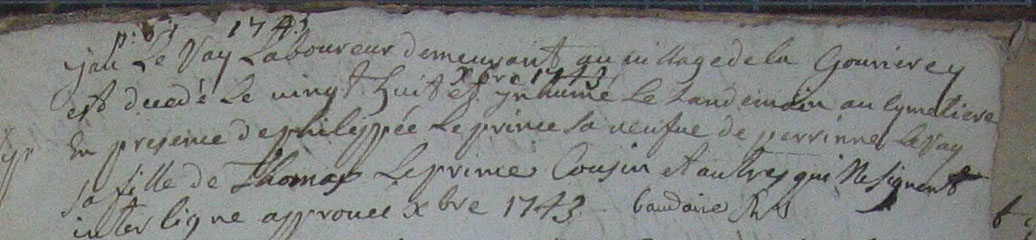 1743
jan Le Vay Laboureur demeurant au village de la Gourierey
est decedé Le vingt huit xbre 1743 et ynhumé Le Landemain au Cymetiere
En presence de philippée Le prince sa veufue de perrinne Le Vay
sa fille de Thomas Le prince Cousin et autres qui Ne signent
interligne approuvé xbre 1743